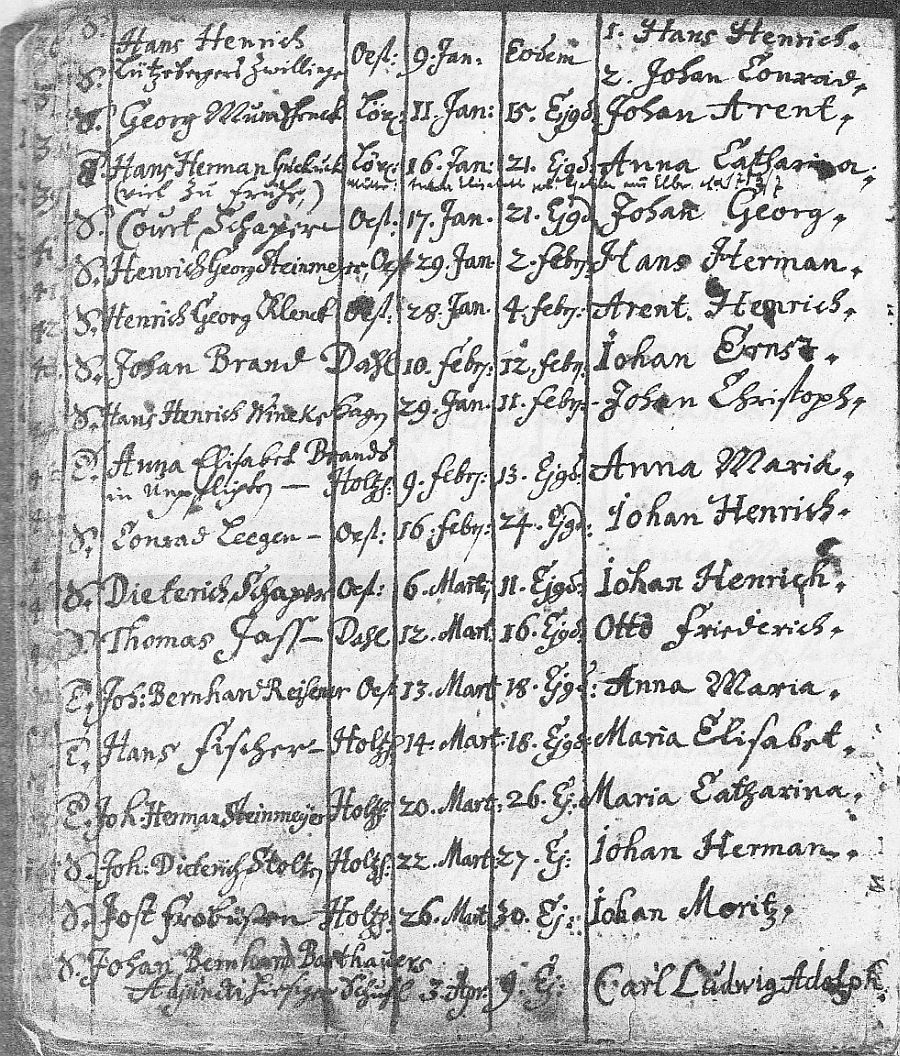 S. Hans Henrich Oest: 9. Jan. Eodem 1. Hans Henrich.
S. Lützebergers Zwillinge 2. Johan Conrad.
S. Georg Lörr: 11. Jan: 15. Ejgd. Johan Arent.
T. Hans Herman Lörr: 16. Jan: 21. Ejgd. Anna Catharina.
(viel zu frühe,)
S. Court Schaper Oest: 17. Jan. 21. Ejgd Johan Georg.
S. Henrich Georg Steinmeyer Oest 29. Jan 2. febr: Hans Herman.
S. Henrich Georg Klenck Oest: 28. Jan. 4. febr: Arent Henrich.
S. Johan Brand Dahl 10. febr: 12. febr: Johan Ernst.
S. Hans Henrich Wineke Hagen 29. Jan. 11. febr. Johan Christoph.
T. Anna Elisabet Brands
in Unpflichten – Holtzh: 9. febr: 13. Ejgd. Anna Maria.
S. Conrad Leegen – Oest: 16. febr: 24. Ejgd: Johan Henrich.
S. Dieterich Schaper Oest: 6. Martz 11. Ejgd. Johan Henrich.
S. Thomas Jass – Dahl 12. Mart. 16. Ejgd. Otto Friederich.
T. Joh: Bernhard Reisener Oest 13. Mart 18. Ejgd: Anna Maria.
T. Hans Fischer – Holtzh 14. Mart. 18. Ejgd. Maria Elisabet.
T. Joh Herman Steinmeyer Holtzh. 20. Mart. 26. Ej. Maria Catharina.
S. Joh: Dieterich Stoltz Holtzh: 22. Mart. 27. Ej: Johan Herman.
S. Jost Frobüsen Holtzh: 26. Mart. 30. Ej: Johan Moritz.
S. Johan Bernhard Basthauers
Adjuncti hiesiger Schuhl 3. Apr. 9. Ej: Carl Ludwig Adolph.